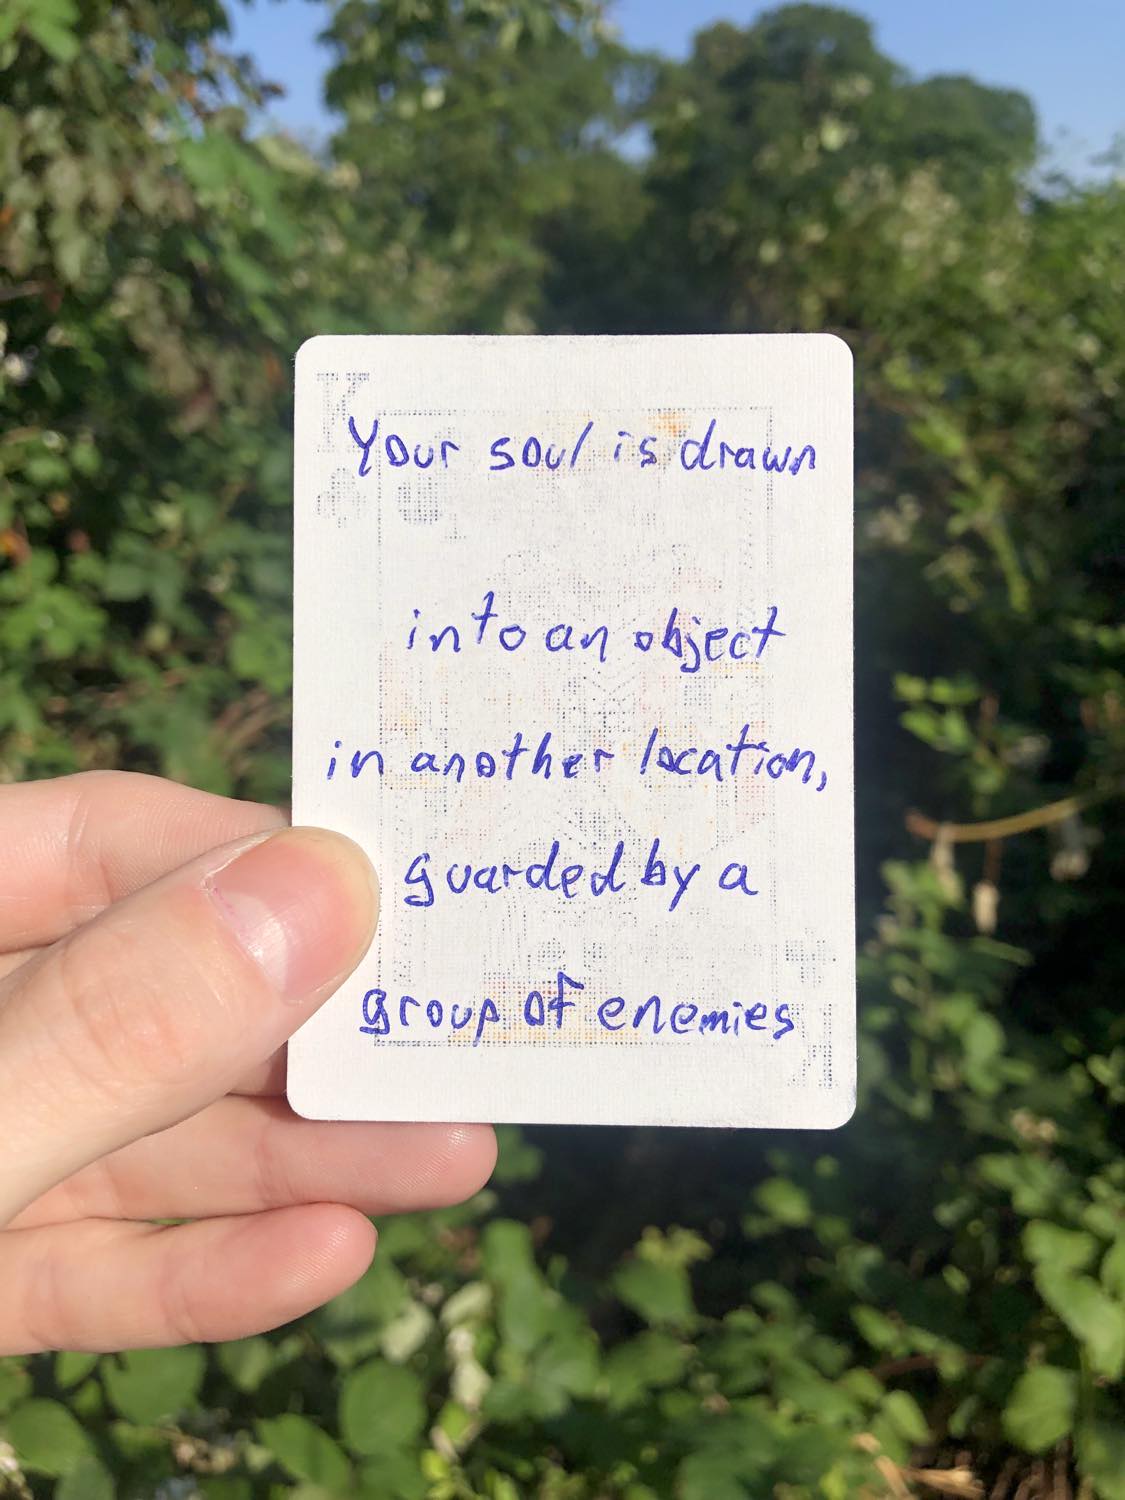 K
Your soul is drawn
into an object
in another location,
guarded by a
group of enemies
K